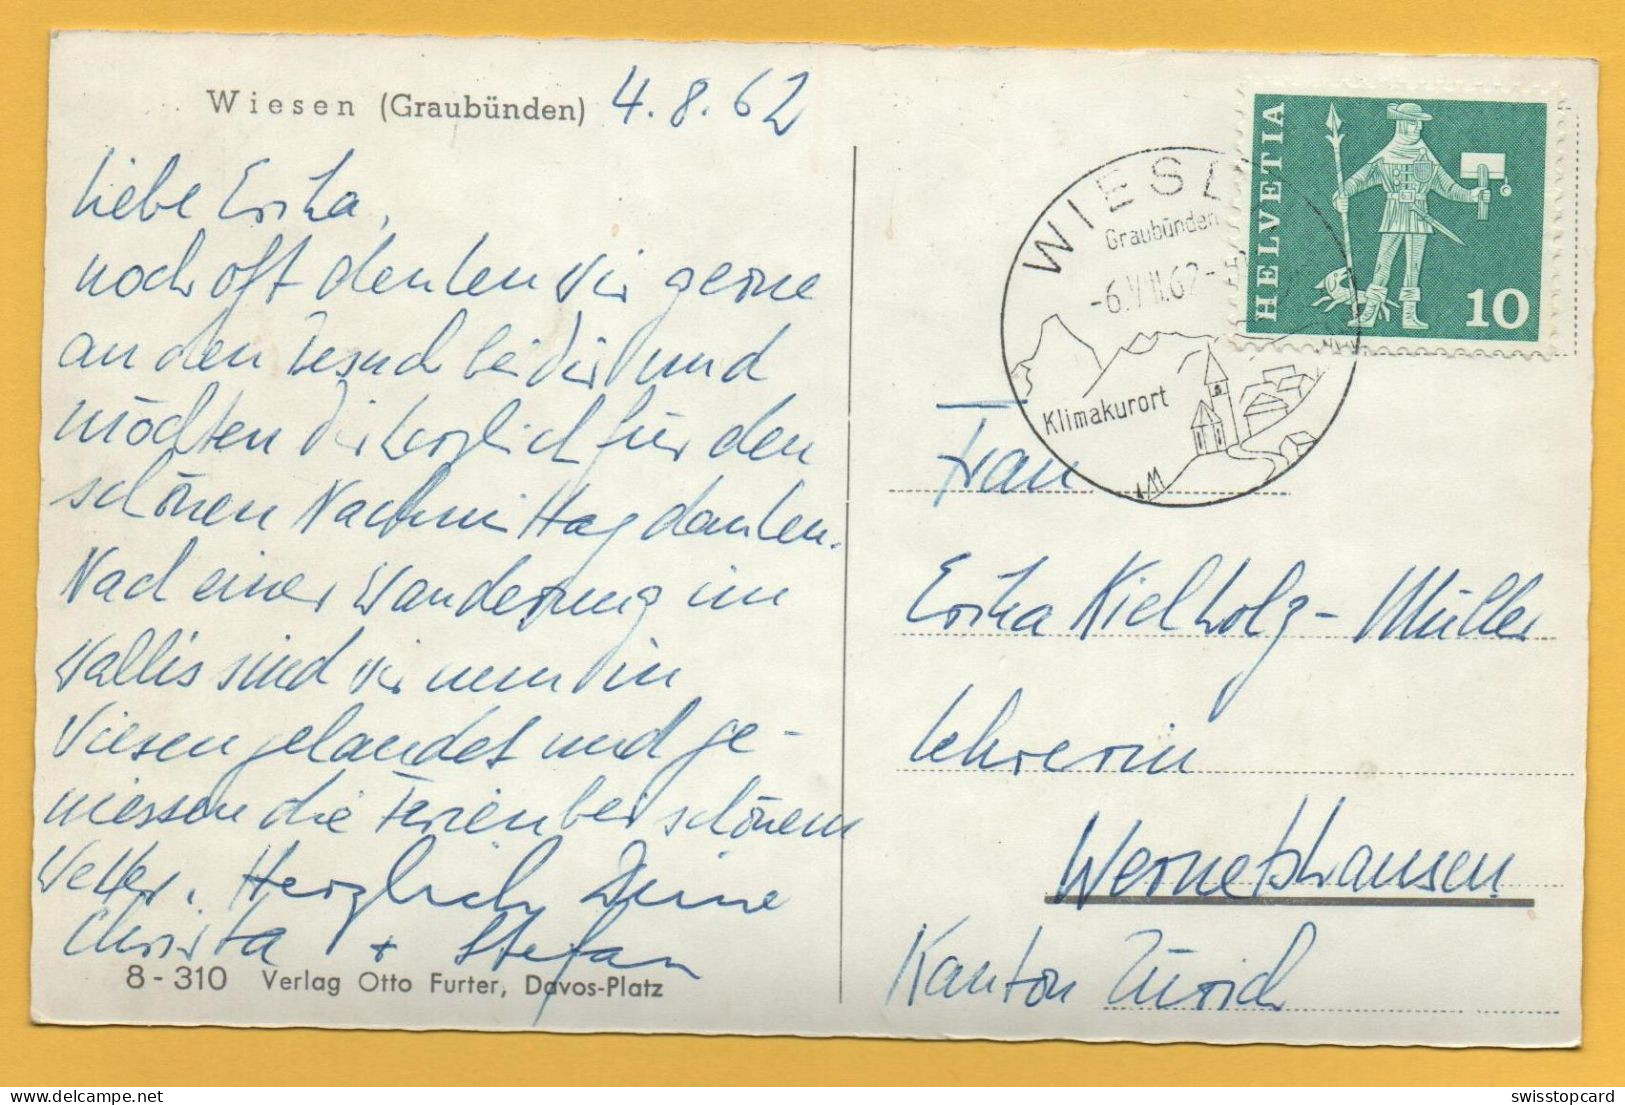 Wiesen (Graubünden) 4.8.62
Liebe Erika,
noch oft denken wir gerne
an den Besuch bei Dir und
möchten Dir herzlich für den
schönen Nachmittag danken.
Nach einer Wanderung im
Wallis sind wir nun in
Wiesen gelandet und ge-
niessen die Ferien bei schönem
Wetter. Herzlich Deine
Christa + Stefan
8-310 Verlag Otto Furter, Davos-Platz
HELVETIA
10
WIESEN
Graubünden
-6.VIII.62-
Klimakurort
Frau
Erika Kielholz-Müller
Lehrerin
Wernetshausen
Kanton Zürich
delcampe.net
swisstopcard